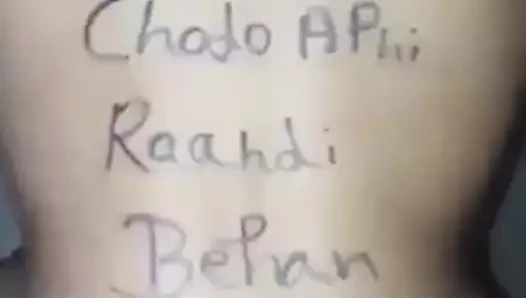 Chodo APni
Raandi
Behan